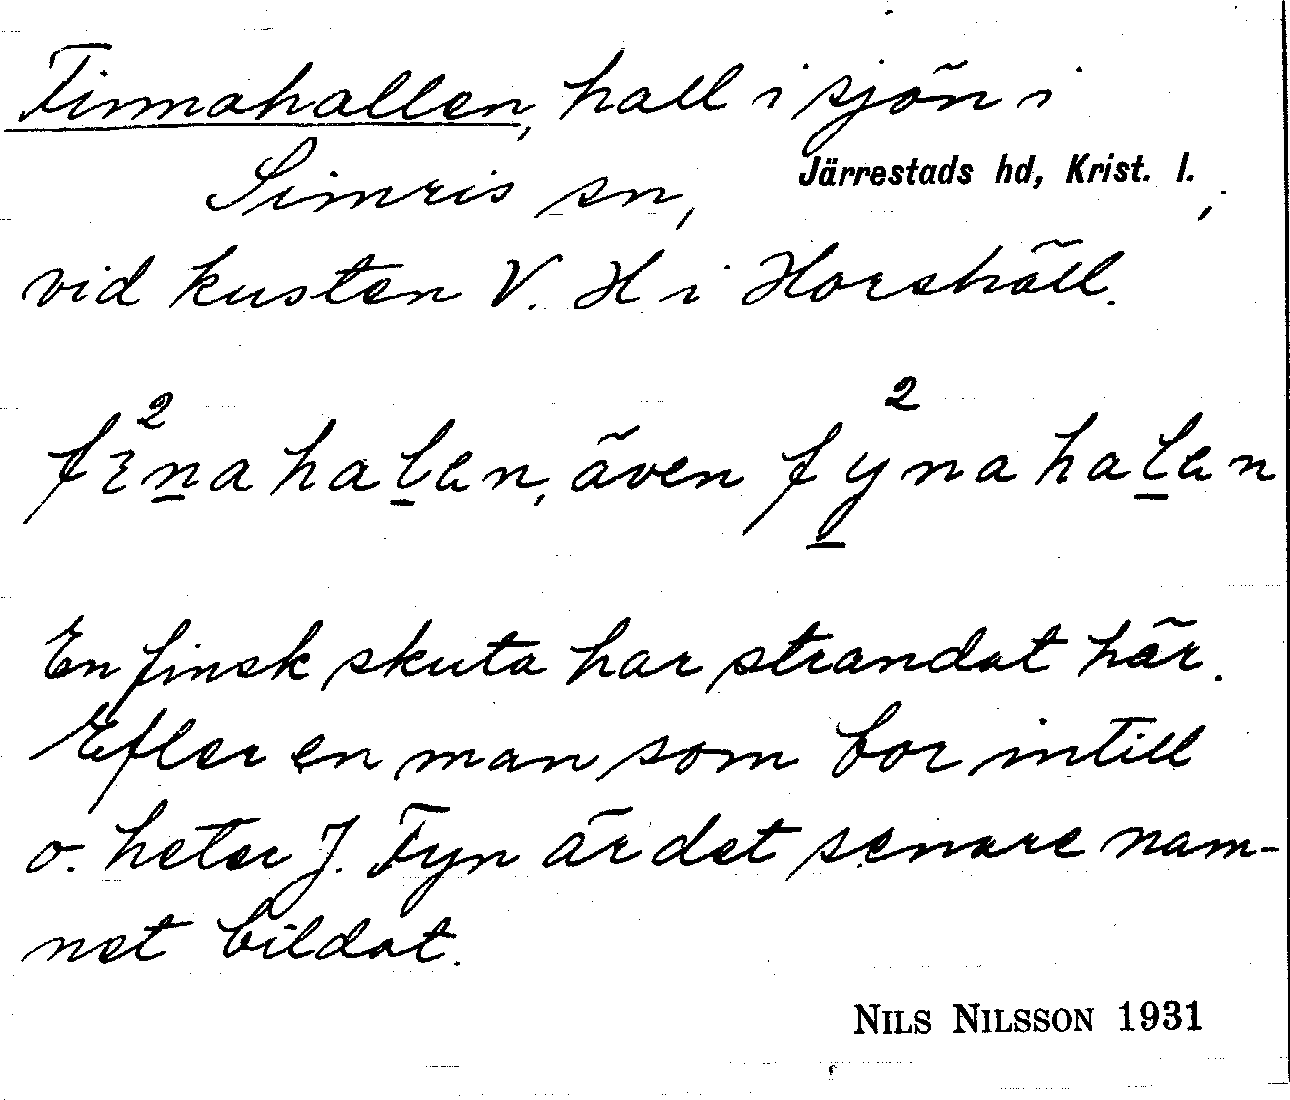 Finnahallen, hall i sjön i
Simris sn, Järrestads hd, Krist. l.,
vid kusten V. H i Horshäll.
fi²n̲ahal̲en, även fy̲²nahal̲en
En finsk skuta har strandat här.
Efter en man som bor intill
o. heter J. Fyn är det senare nam-
net bildat.
NILS NILSSON 1931